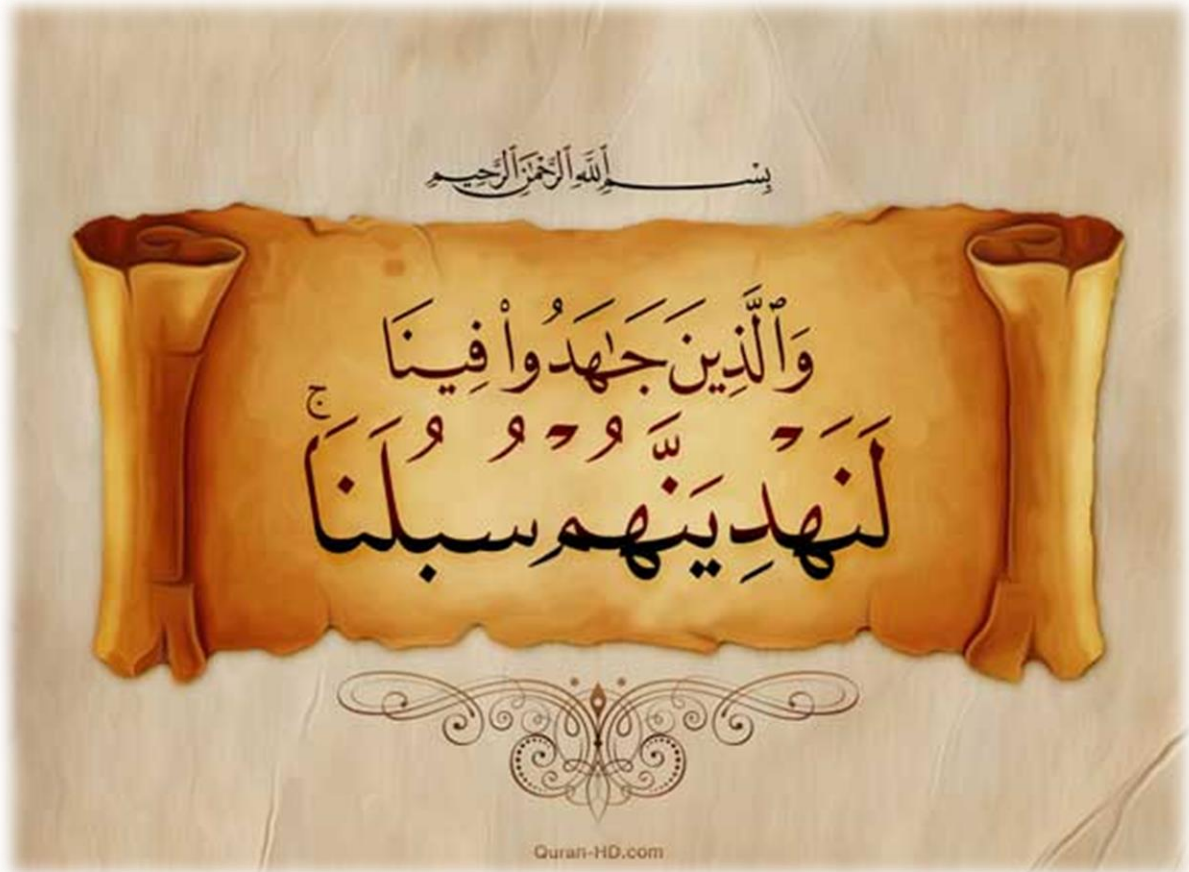 بِسْمِ ٱللَّهِ ٱلرَّحْمَٰنِ ٱلرَّحِيمِ
وَٱلَّذِينَ جَٰهَدُوا۟ فِينَا
لَنَهْدِيَنَّهُمْ سُبُلَنَا ۚ
Quran-HD.com